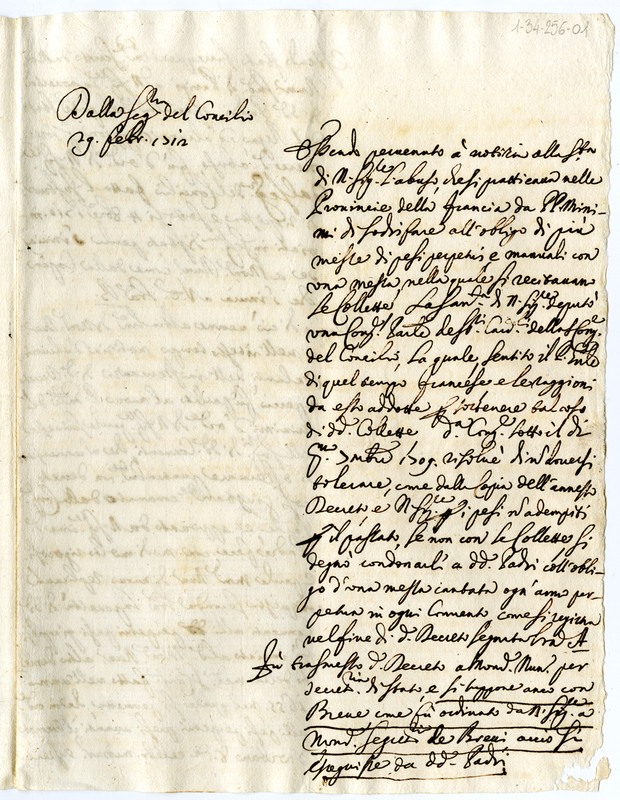 1-34-256-01
Dalla Seg.ria del Concilio
29. febr. 1712
Essendo pervenuto à notizia alla S.tà
di N. Sig.re l'abuso che si pratticava nelle
Provincie della francia da PP. Mini-
mi di sodisfare all'obligo di più
messe di pesi perpetui e manuali con
una messa, nella quale si recitavano
le Collette, La San.tà di N. Sig.re deputò
una Cong.
del Concilio, la quale, sentito il
di quel tempo francese e le raggioni
da esso addotte p sostenere tal uso
di dd. Collette d.a Cong.e sotto il dì
7mbre 1709. risolvé di n doversi
tolerare, come dalla Copia dell'annesso
Decreto, e N. Sig.re p i pesi n adempiti
p il passato, se non con le Collette si
degnò condonarli a dd. Padri coll'obli-
go d'una messa cantata ogn'anno per-
petua in ogni Convento come si registra
nel fine di d. Decreto segnato A
Fù trasmesso d. Decreto a Mons. Nun.o per
Secret.ria di Stato, e si suppone anco con
Breve come fù ordinato da N. Sig.re a
Mons. Segret.rio de Brevi acciò si
eseguisse da dd. Padri